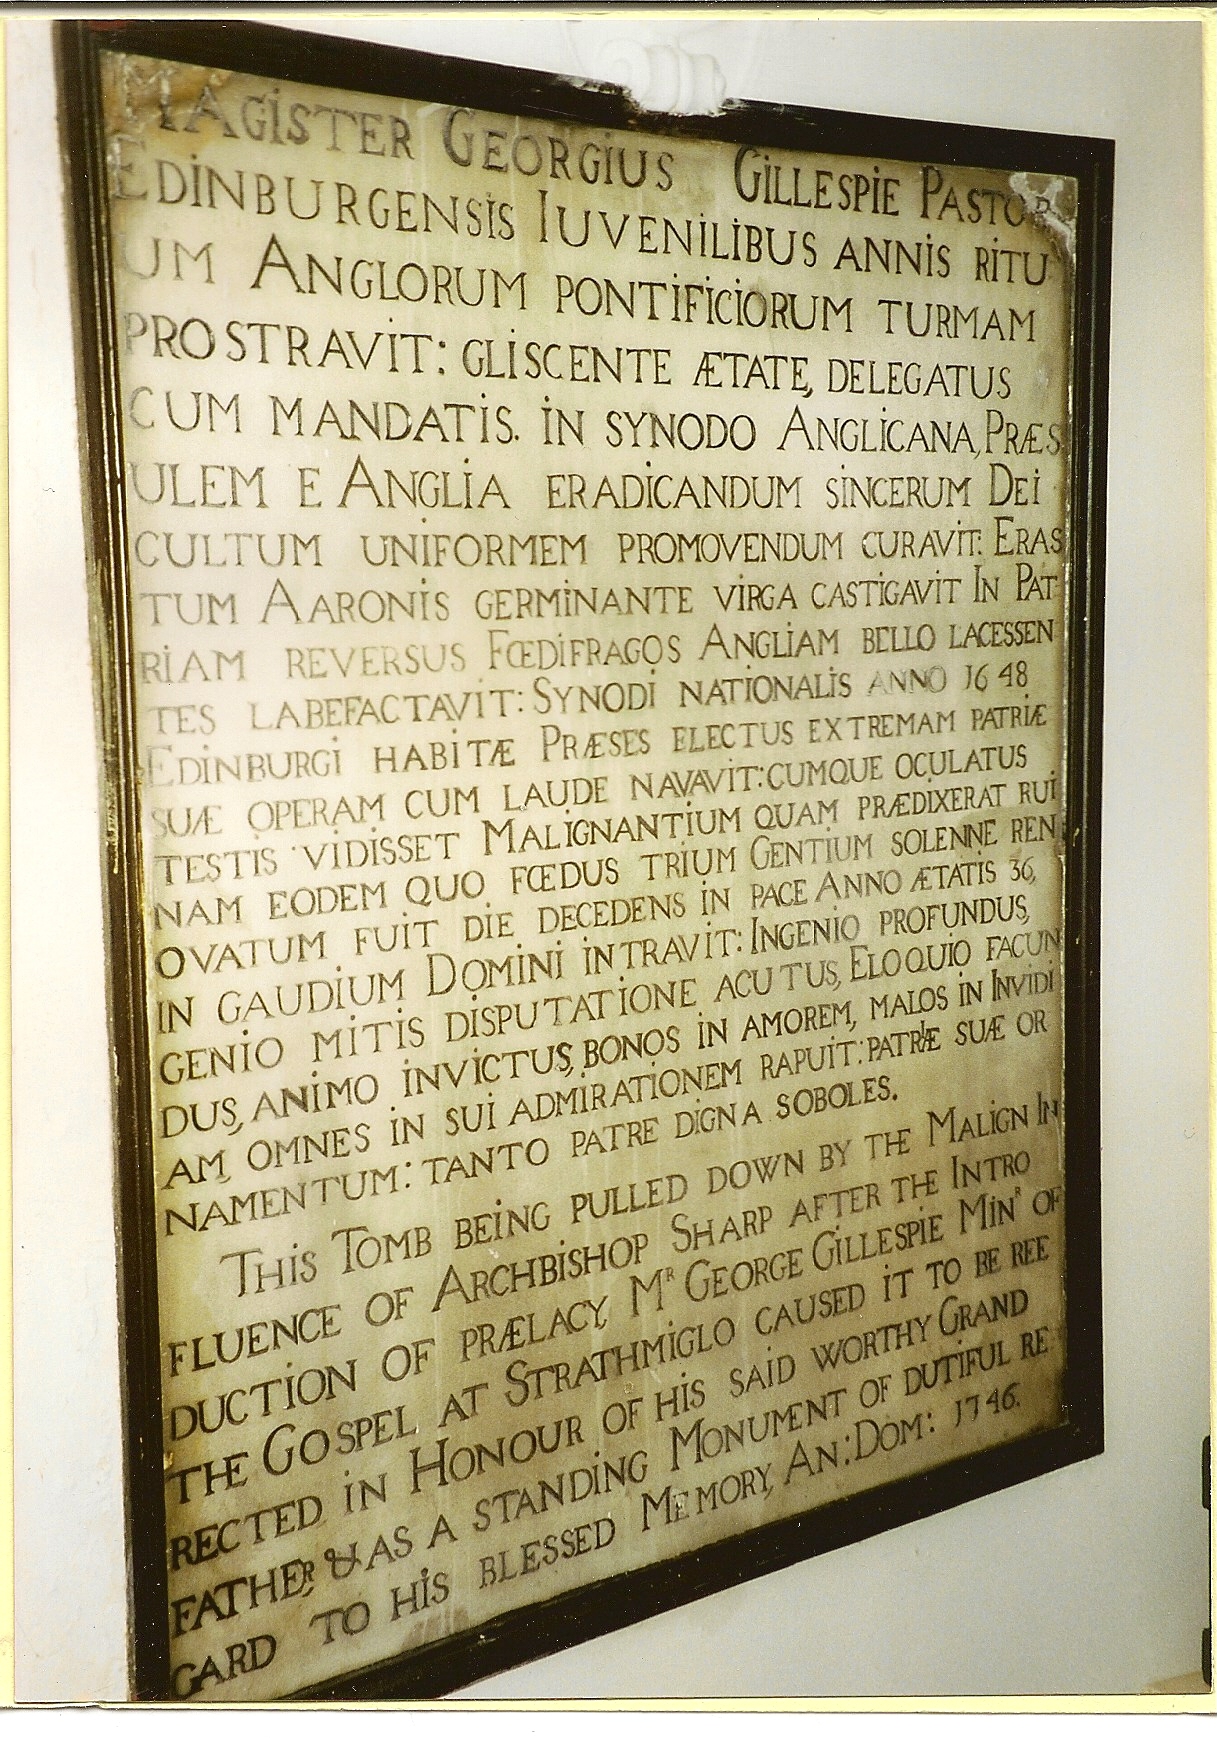 MAGISTER GEORGIUS GILLESPIE PASTOR
EDINBURGENSIS IUVENILIBUS ANNIS RITU
UM ANGLORUM PONTIFICIORUM TURMAM
PROSTRAVIT: GLISCENTE ÆTATE, DELEGATUS
CUM MANDATIS. IN SYNODO ANGLICANA, PRÆS
ULEM E ANGLIA ERADICANDUM SINCERUM DEI
CULTUM UNIFORMEM PROMOVENDUM CURAVIT: ERAS
TUM AARONIS GERMINANTE VIRGA CASTIGAVIT IN PAT
RIAM REVERSUS FŒDIFRAGOS ANGLIAM BELLO LACESSEN
TES LABEFACTAVIT: SYNODI NATIONALIS ANNO 1648
EDINBURGI HABITÆ PRÆSES ELECTUS EXTREMAM PATRIÆ
SUÆ OPERAM CUM LAUDE NAVAVIT: CUMQUE OCULATUS
TESTIS VIDISSET MALIGNANTIUM QUAM PRÆDIXERAT RUI
NAM EODEM QUO FŒDUS TRIUM GENTIUM SOLENNE REN
OVATUM FUIT DIE DECEDENS IN PACE ANNO ÆTATIS 36,
IN GAUDIUM DOMINI INTRAVIT: INGENIO PROFUNDUS,
GENIO MITIS DISPUTATIONE ACUTUS, ELOQUIO FACUN
DUS, ANIMO INVICTUS, BONOS IN AMOREM, MALOS IN INVIDI
AM, OMNES IN SUI ADMIRATIONEM RAPUIT: PATRIÆ SUÆ OR
NAMENTUM: TANTO PATRE DIGNA SOBOLES.
THIS TOMB BEING PULLED DOWN BY THE MALIGN IN
FLUENCE OF ARCHBISHOP SHARP AFTER THE INTRO
DUCTION OF PRÆLACY, Mᴿ GEORGE GILLESPIE MINᴿ OF
THE GOSPEL AT STRATHMIGLO CAUSED IT TO BE REE
RECTED IN HONOUR OF HIS SAID WORTHY GRAND
FATHER, & AS A STANDING MONUMENT OF DUTIFUL RE
GARD TO HIS BLESSED MEMORY, AN: DOM: 1746.